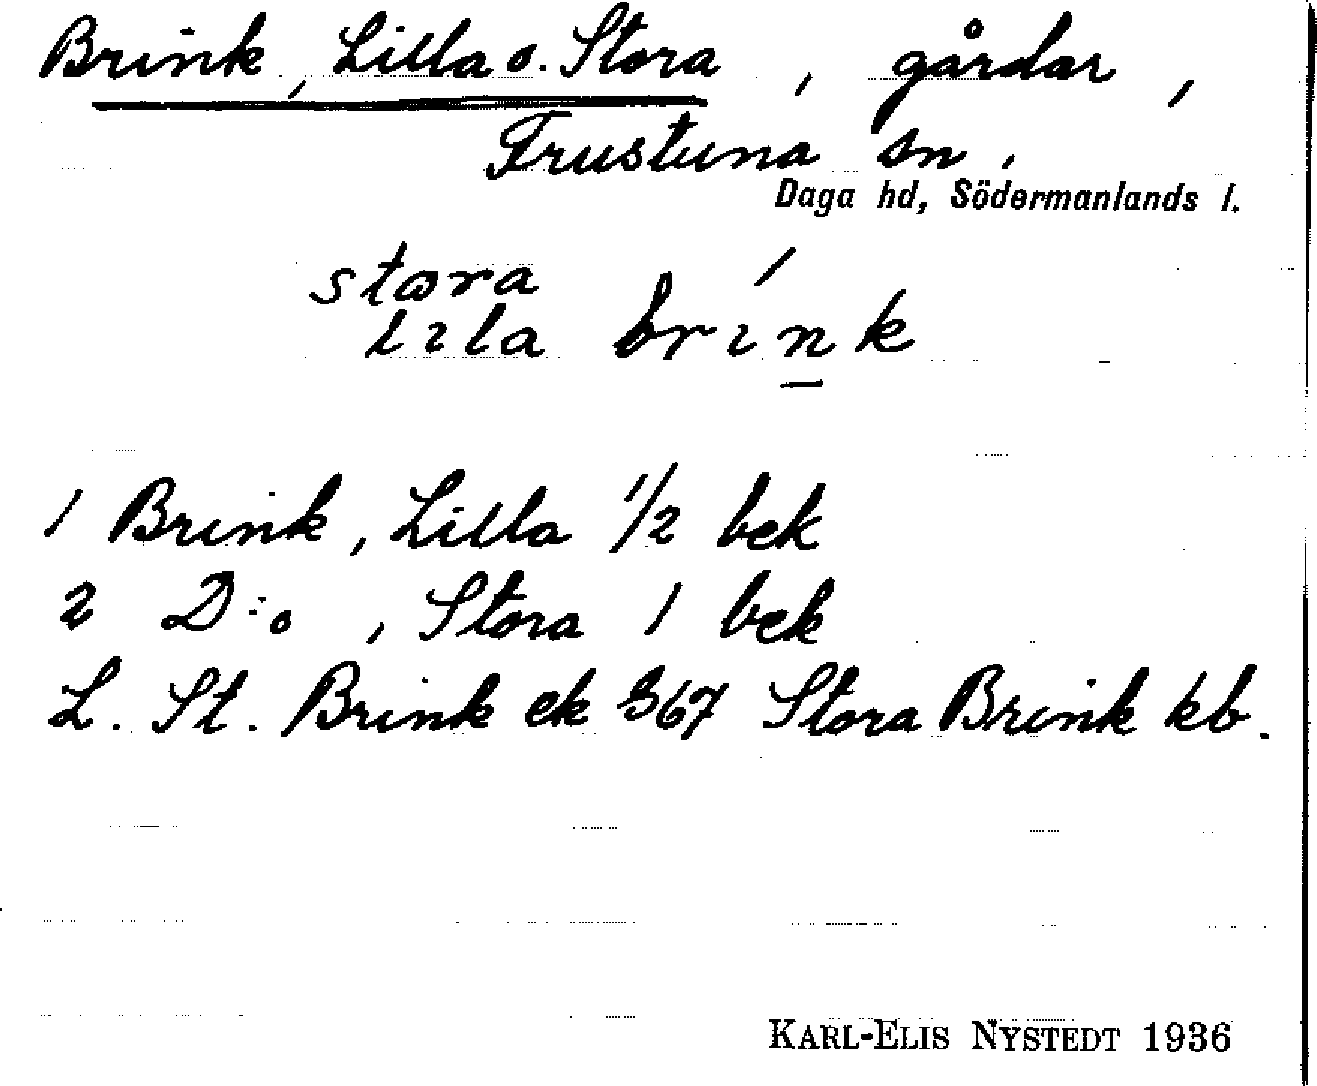 Brink, Lilla o. Stora, gårdar,
Frustuna sn.
Daga hd, Södermanlands l.
stora
lila brink
1 Brink, Lilla 1/2 bek
2 D:o, Stora 1 bek
L. St. Brink ek 367 Stora Brink kb.
KARL-ELIS NYSTEDT 1936